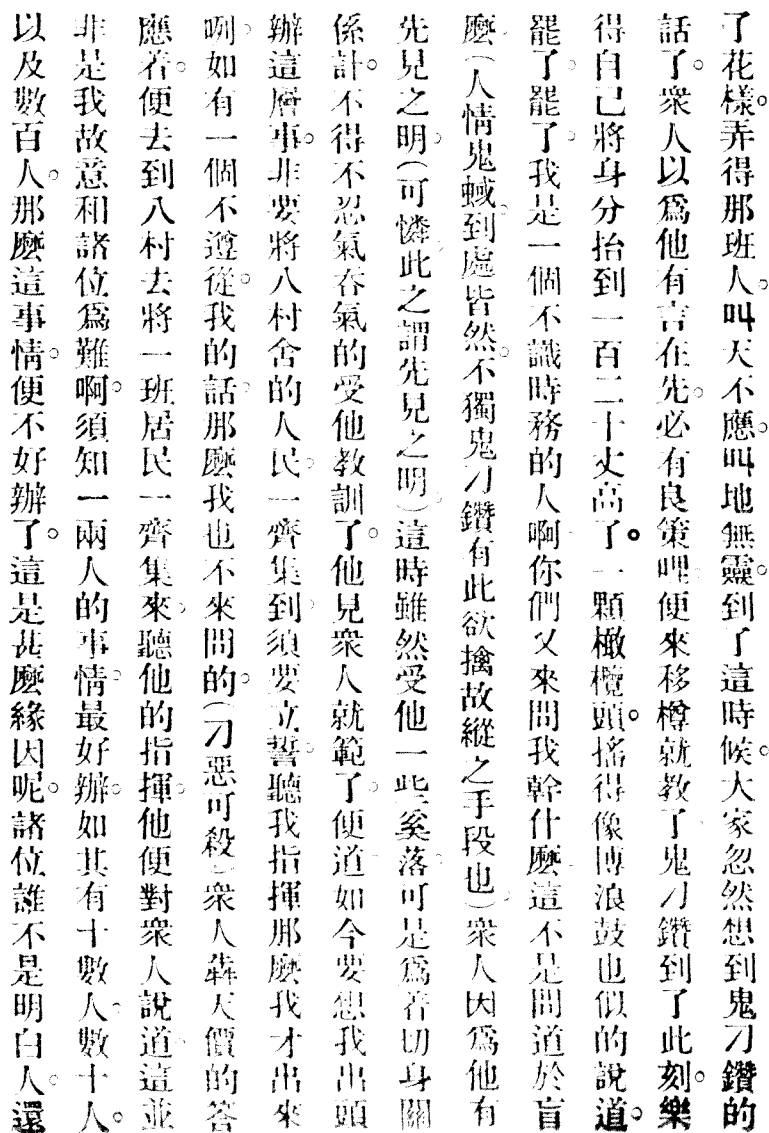 了花樣。弄得那班人。叫天不應。叫地無靈。到了這時候。大家忽然想到鬼刁鑽的
話了。衆人以爲他有言在先。必有良策哩便來移樽就教了鬼刁鑽到了此刻。樂
得自己將身分抬到一百二十丈高了。一顆橄欖頭。搖得像博浪鼓也似的說道。
罷了罷了。我是一個不識時務的人啊你們又來問我幹什麼這不是問道於盲
麼(人情鬼蜮。到處皆然。不獨鬼刁鑽有此欲擒故縱之手段也)衆人因爲他有
先見之明(可憐此之謂先見之明)這時雖然受他一些奚落可是爲着切身關
係計。不得不忍氣吞氣的受他教訓了。他見衆人就範了便道如今要想我出頭
辦這層事。非要將八村舍的人民。一齊集到。須要立誓。聽我指揮那麼我才出來
咧。如有一個不遵從。我的話。那麼我也不來問的。(刁惡可殺)衆人犇天價的答
應着。便去到八村去將一班居民一齊集來。聽他的指揮。他便對衆人說道。這並
非是我故意和諸位爲難啊。須知一兩人的事情。最好辦。如其有十數人。數十人。
以及數百人。那麼這事情。便不好辦了。這是甚麼緣因呢。諸位誰不是明白人。還